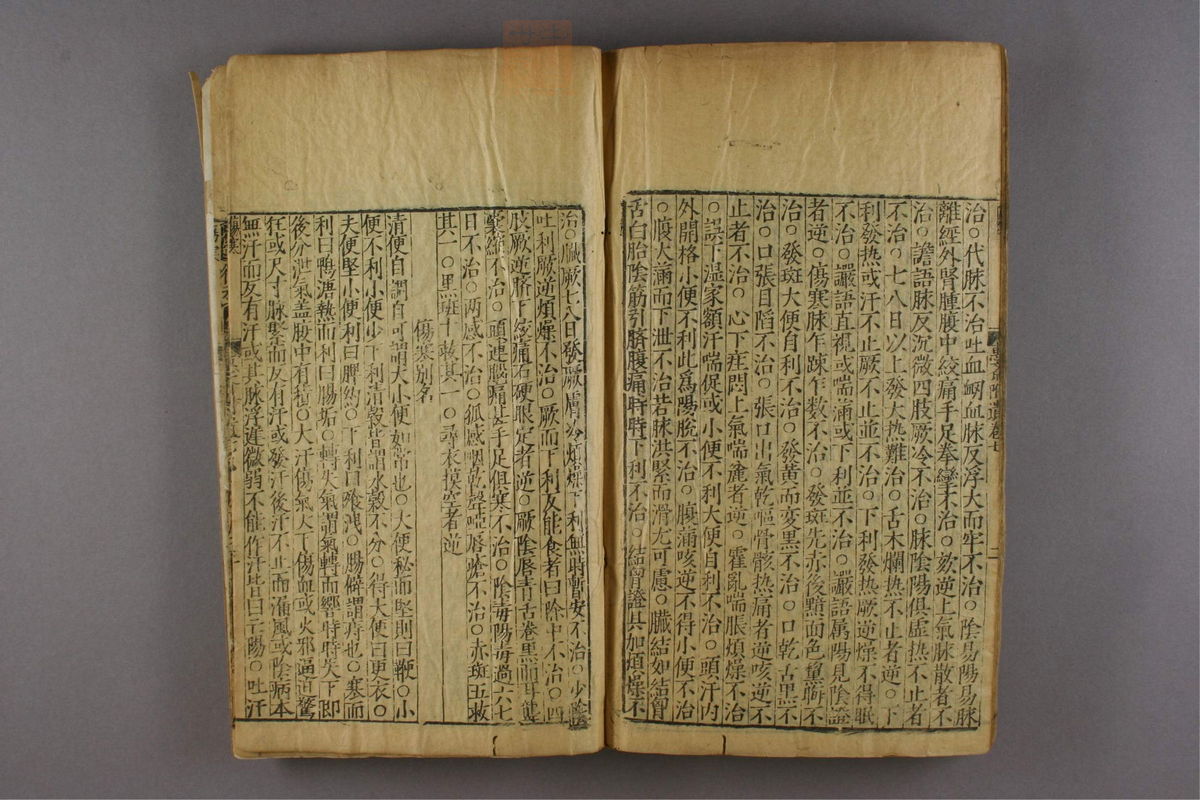 治○代脉不治吐血衂血脉反浮大而牢不治○陰昜陽昜脉
離經外腎腫腹中絞痛手足拳攣不治○欬逆上氣脉散者不
治○譫語脉反沉微四肢厥冷不治○脉陰陽俱虛热不止者
不治○七八日以上發大热難治○舌木爛热不止者逆○下
利發热或汗不止厥不止並不治○下利發热厥逆燥不得眠
不治○讝語直視或喘滿或下利並不治○讝語厲陽見陰證
者逆○傷寒脉乍踈乍数不治○發斑先赤後黯面色黧晦不
治○發斑大便自利不治○發黄而变黑不治○口乾舌黑不
治○口張目䧟不治○張口出氣乾嘔骨骸热痛者逆咳逆不
止者不治○心下痓悶上氣喘麄者逆○霍亂喘脹煩燥不治
○誤下溫家額汗喘促或小便不利大便自利不治○頭汗内
外開格小便不利此爲陽脫不治○腹滿咳逆不得小便不治
○腹大滿而下泄不治若脉洪緊而滑尤可慮○臓結如結胷
舌白胎陰筋引臍腹痛時時下利不治○結胷證具加煩燥不
治○臓厥七八日發厥膚冷煩燥下利無時暫安不治○少隂
吐利厥逆煩燥不治○厥而下利反能食者曰除中不治○四
肢厥逆臍下絞痛石硬眼定者逆○厥陰唇青舌卷黑而耳聾
囊縮不治○頭連腦痛甚手足俱寒不治○陰毒陽毒過六七
日不治○两感不治○狐惑咽乾聲啞唇瘡不治○赤斑五救
其一○黑斑十救其一○尋衣摸空者逆
傷寒別名
清便自調自可謂大小便如常也○大便秘而堅則曰鞕○小
便不利小便少下利清穀皆謂水穀不分○得大便曰更衣○
夫便堅小便利曰脾約○下利曰飱洩○腸僻謂痔也○寒而
利曰鴨溏熱而利曰腸垢○轉失氣謂氣轉而响時時失下即
後分泄氣盖腹中有積○大汗傷氣大下傷血或火邪逼逆驚
狂或尺寸脉緊而反有汗或發汗後汗不止而漏風或陰病本
無汗而反有汗或其脉浮遲微弱不能作汗皆曰亡陽○吐汗